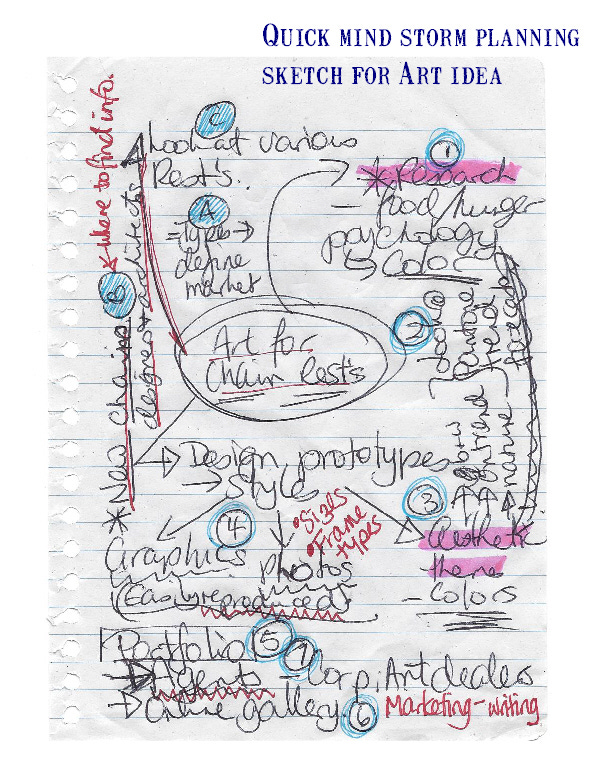 Quick mind storm planning
sketch for Art idea
C
Look at various
Rest's.
A
=types→
define
market
1
*Research
– food/hunger
psychology
↳ Color
←where to find info.
B
*New chains
designers + architects
Art for
Chain Rest's
2
→ Design prototypes
→ Style
3
Aesthetic
theme
– Colors
4
Graphics
photos
(Easily reproduced)
•Sizes
•Frame
types
Portfolio 5
→Agents 7 – Corp. Art dealers
→Online gallery. 6
Marketing – writing